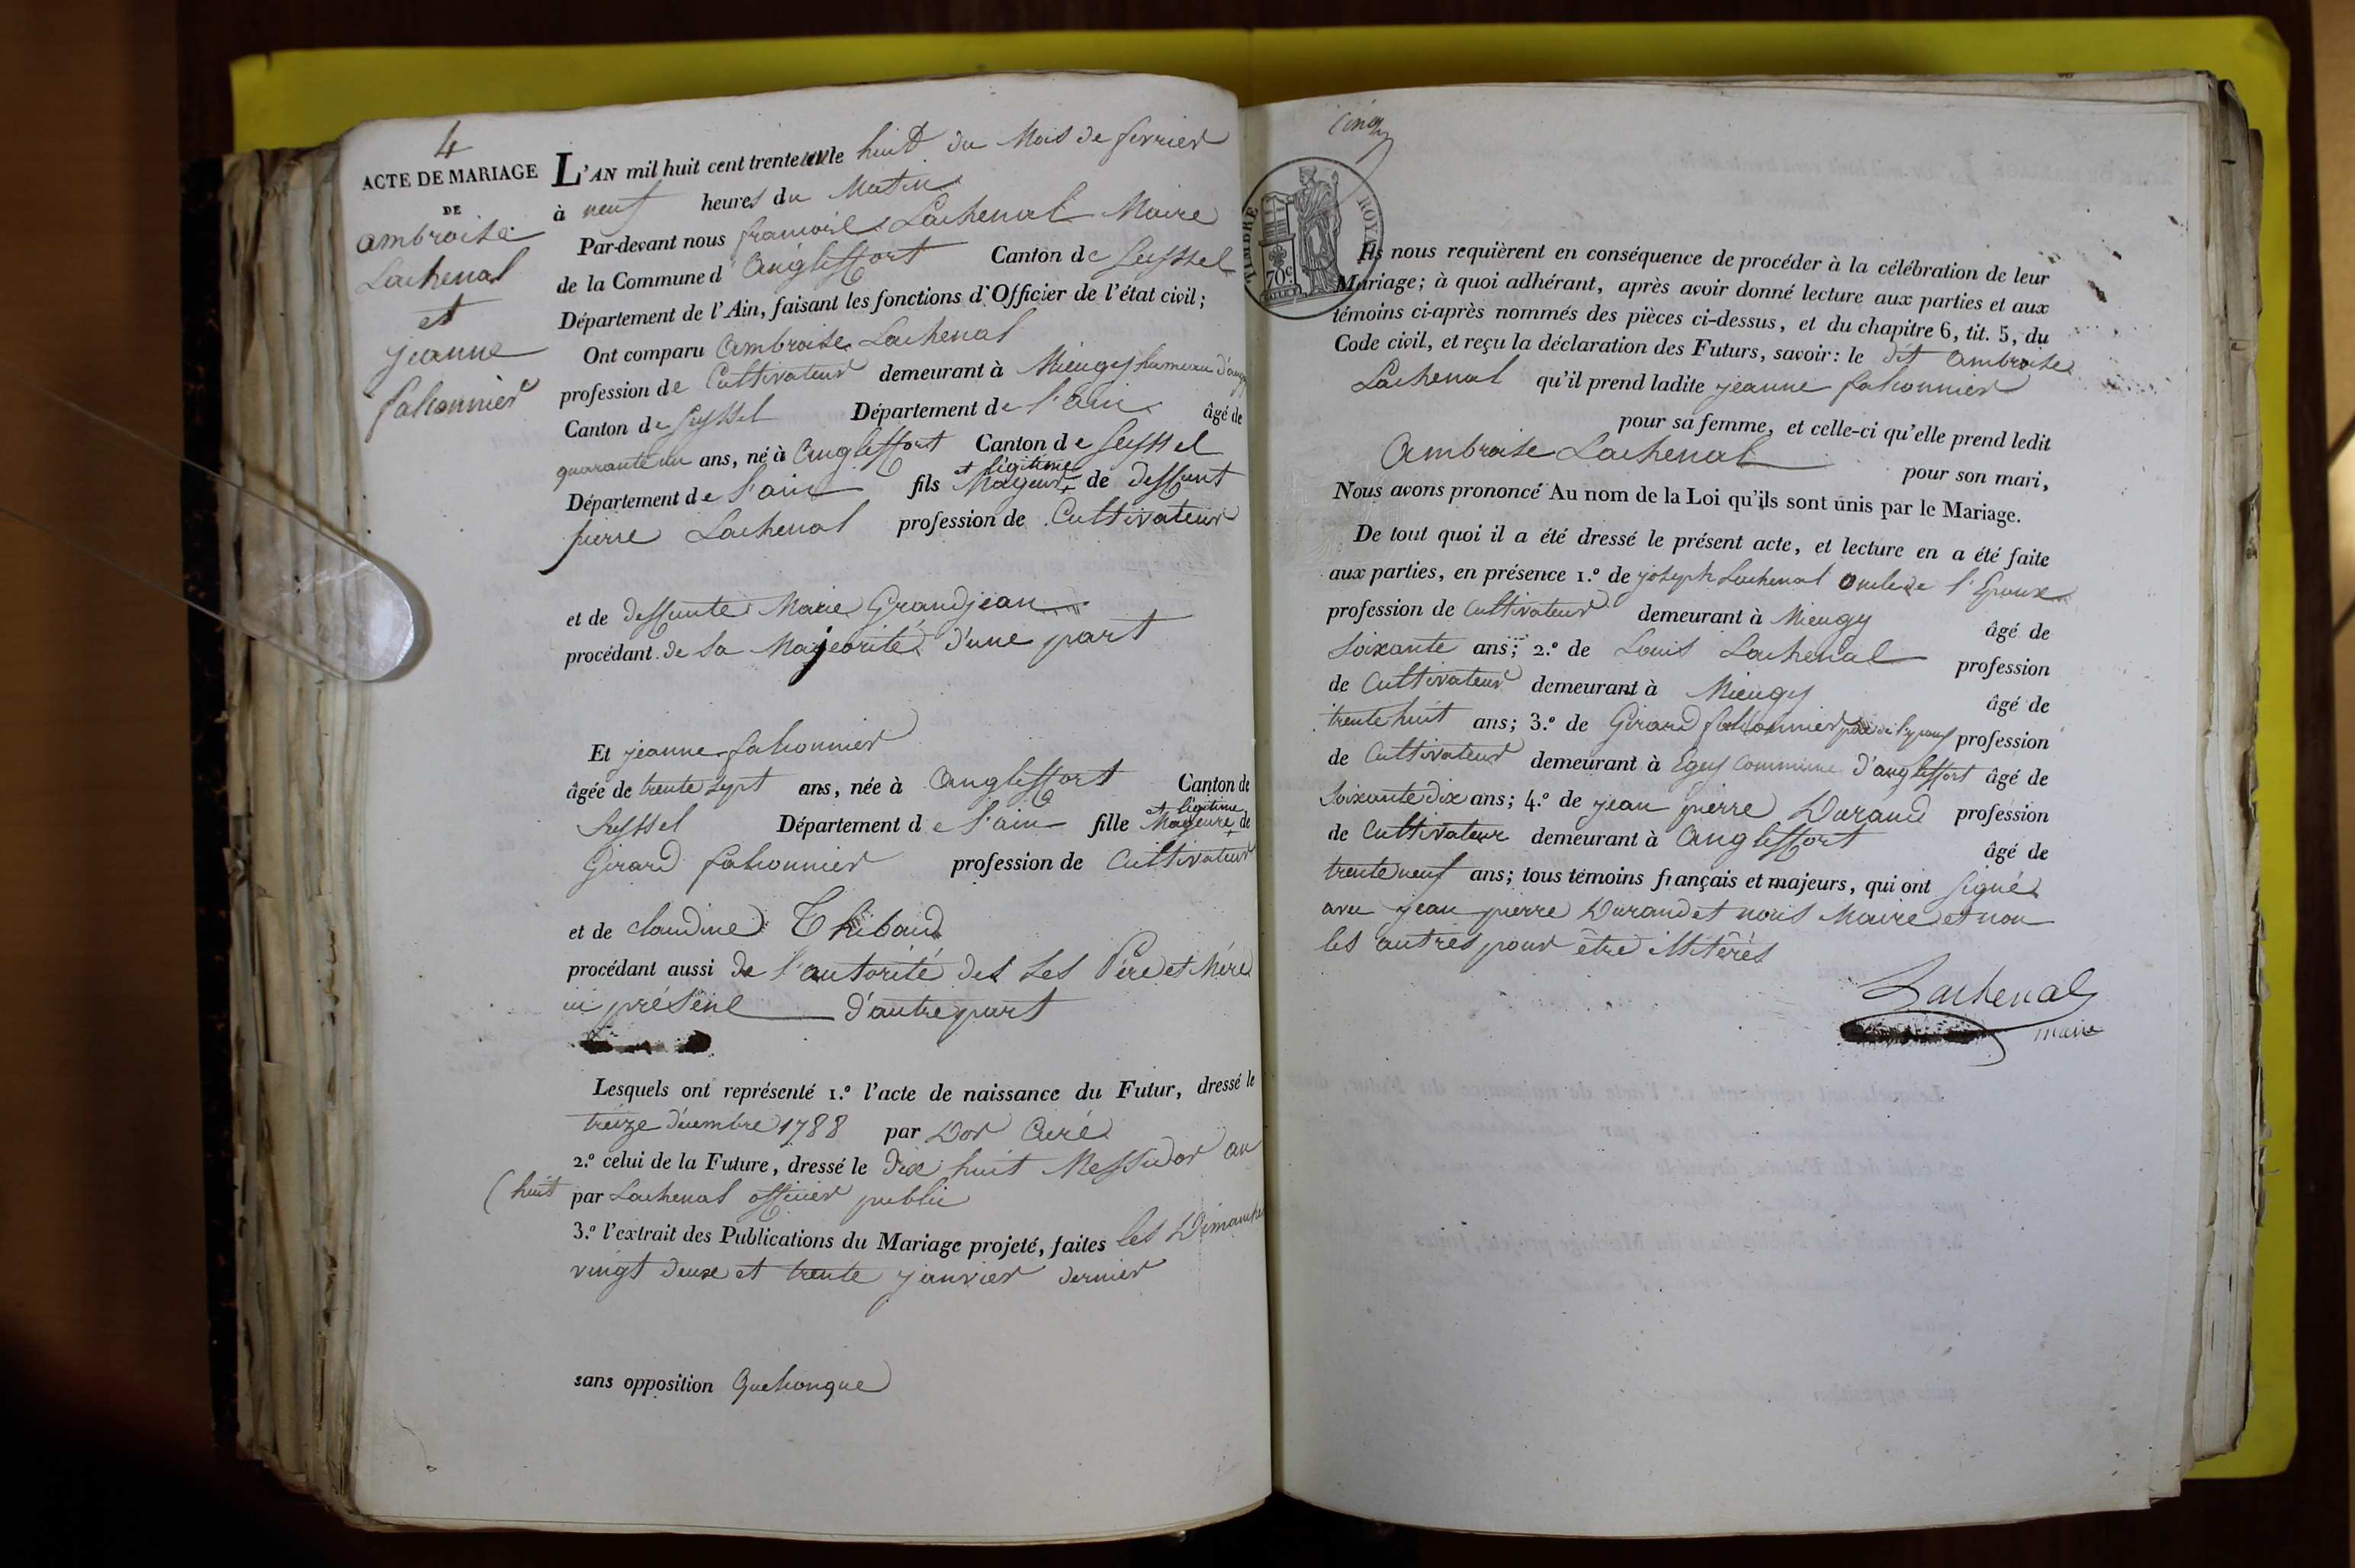 4
ACTE DE MARIAGE
DE
ambroise
Lachenal
et
jeanne
falconnier
L'AN mil huit cent trente un le huit du Mois de fevrier
à neuf heures du Matin
Par-devant nous francois Lachenal Maire
de la Commune d'Angleffort Canton de Seyssel
Département de l'Ain, faisant les fonctions d'Officier de l'état civil;
Ont comparu Ambroise Lachenal
profession de Cultivateur demeurant à Mieugy hameau d'ang
Canton de Seyssel Département de l'ain âgé de
quarante un ans, né à Angleffort Canton de Seyssel
et légitime
Département de l'ain fils Mageur + de deffunt
pierre Lachenal profession de Cultivateur
et de deffunte Marie Grandjean
procédant de sa Majeorité d'une part
Et jeanne falconnier
âgée de trente sept ans, née à Angleffort Canton de
et légitime
Seyssel Département de l'ain fille Mageure + de
Girard falconnier profession de Cultivateur
et de claudine Thibaud
procédant aussi de l'autorité des ses Père et Mère
ici présent d'autre part
Lesquels ont représenté 1.° l'acte de naissance du Futur, dressé le
treize décembre 1788 par Dor Curé
2.° celui de la Future, dressé le dix huit Messidor an
(huit par Lachenal officier public
3.° l'extrait des Publications du Mariage projeté, faites les Dimanches
vingt deux et trente janvier dernier
sans opposition Quelconque
cinq
TIMBRE ROYAL
70c
Ils nous requièrent en conséquence de procéder à la célébration de leur
Mariage; à quoi adhérant, après avoir donné lecture aux parties et aux
témoins ci-après nommés des pièces ci-dessus, et du chapitre 6, tit. 5, du
Code civil, et reçu la déclaration des Futurs, savoir: le dit Ambroise
Lachenal qu'il prend ladite jeanne falconnier
pour sa femme, et celle-ci qu'elle prend ledit
Ambroise Lachenal pour son mari,
Nous avons prononcé Au nom de la Loi qu'ils sont unis par le Mariage.
De tout quoi il a été dressé le présent acte, et lecture en a été faite
aux parties, en présence 1.° de joseph Lachenal oncle de l'Epoux
profession de Cultivateur demeurant à Mieugy âgé de
soixante ans; 2.° de Louis Lachenal profession
de Cultivateur demeurant à Mieugy âgé de
trente huit ans; 3.° de Girard falconnier père de l'epouse profession
de Cultivateur demeurant à Egey Commune d'angleffort âgé de
soixante dix ans; 4.° de jean pierre Durand profession
de Cultivateur demeurant à Angleffort âgé de
trente neuf ans; tous témoins français et majeurs, qui ont signé
avec jean pierre Durand et nous Maire et non
les autres pour être illitérés
Lachenal
maire